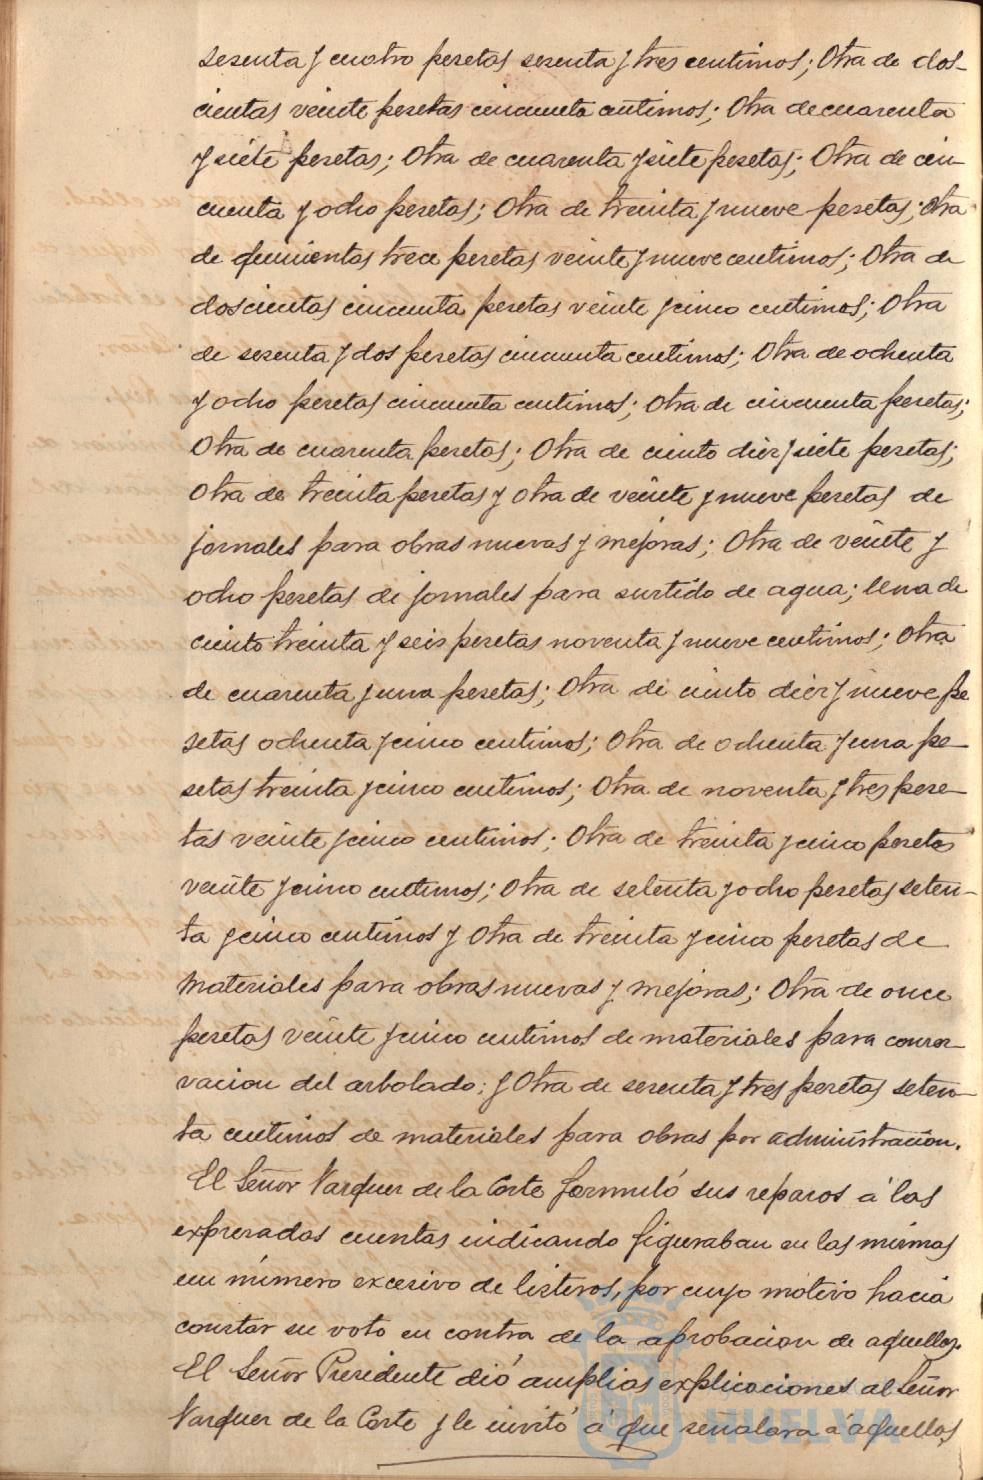 sesenta y cuatro pesetas sesenta y tres centimos; Otra de dos-
cientas veinte pesetas cincuenta centimos; Otra de cuarenta
y siete pesetas; Otra de cuarenta y siete pesetas; Otra de cin-
cuenta y ocho pesetas; Otra de treinta y nueve pesetas; otra
de quinientas trece pesetas veinte y nueve centimos; Otra de
doscientas cincuenta pesetas veinte y cinco centimos; Otra
de sesenta y dos pesetas cincuenta centimos; Otra de ochenta
y ocho pesetas cincuenta centimos; Otra de cincuenta pesetas;
Otra de cuarenta pesetas; Otra de ciento diez y siete pesetas;
Otra de treinta pesetas y otra de veinte y nueve pesetas de
jornales para obras nuevas y mejoras; Otra de veinte y
ocho pesetas de jornales para surtido de agua; Una de
ciento treinta y seis pesetas noventa y nueve centimos; Otra
de cuarenta y una pesetas; Otra de ciento diez y nueve pe
setas ochenta y cinco centimos; Otra de ochenta y una pe-
setas treinta y cinco centimos; Otra de noventa y tres pese-
tas veinte y cinco centimos; Otra de treinta y cinco pesetas
veinte y cinco centimos; Otra de setenta y ocho pesetas seten-
ta y cinco centimos y Otra de treinta y cinco pesetas de
materiales para obras nuevas y mejoras; Otra de once
pesetas veinte y cinco centimos de materiales para conser-
vacion del arbolado; y Otra de sesenta y tres pesetas seten-
ta centimos de materiales para obras por administración.
El Señor Vazquez de la Corte formuló sus reparos á las
expresadas cuentas indicando figuraban en las mismas
un número excesivo de listeros, por cuyo motivo hacia
constar su voto en contra de la aprobacion de aquellas.
El Señor Presidente dió amplias explicaciones al Señor
Vazquez de la Corte y le invitó á que señalara á aquellos
HUELVA